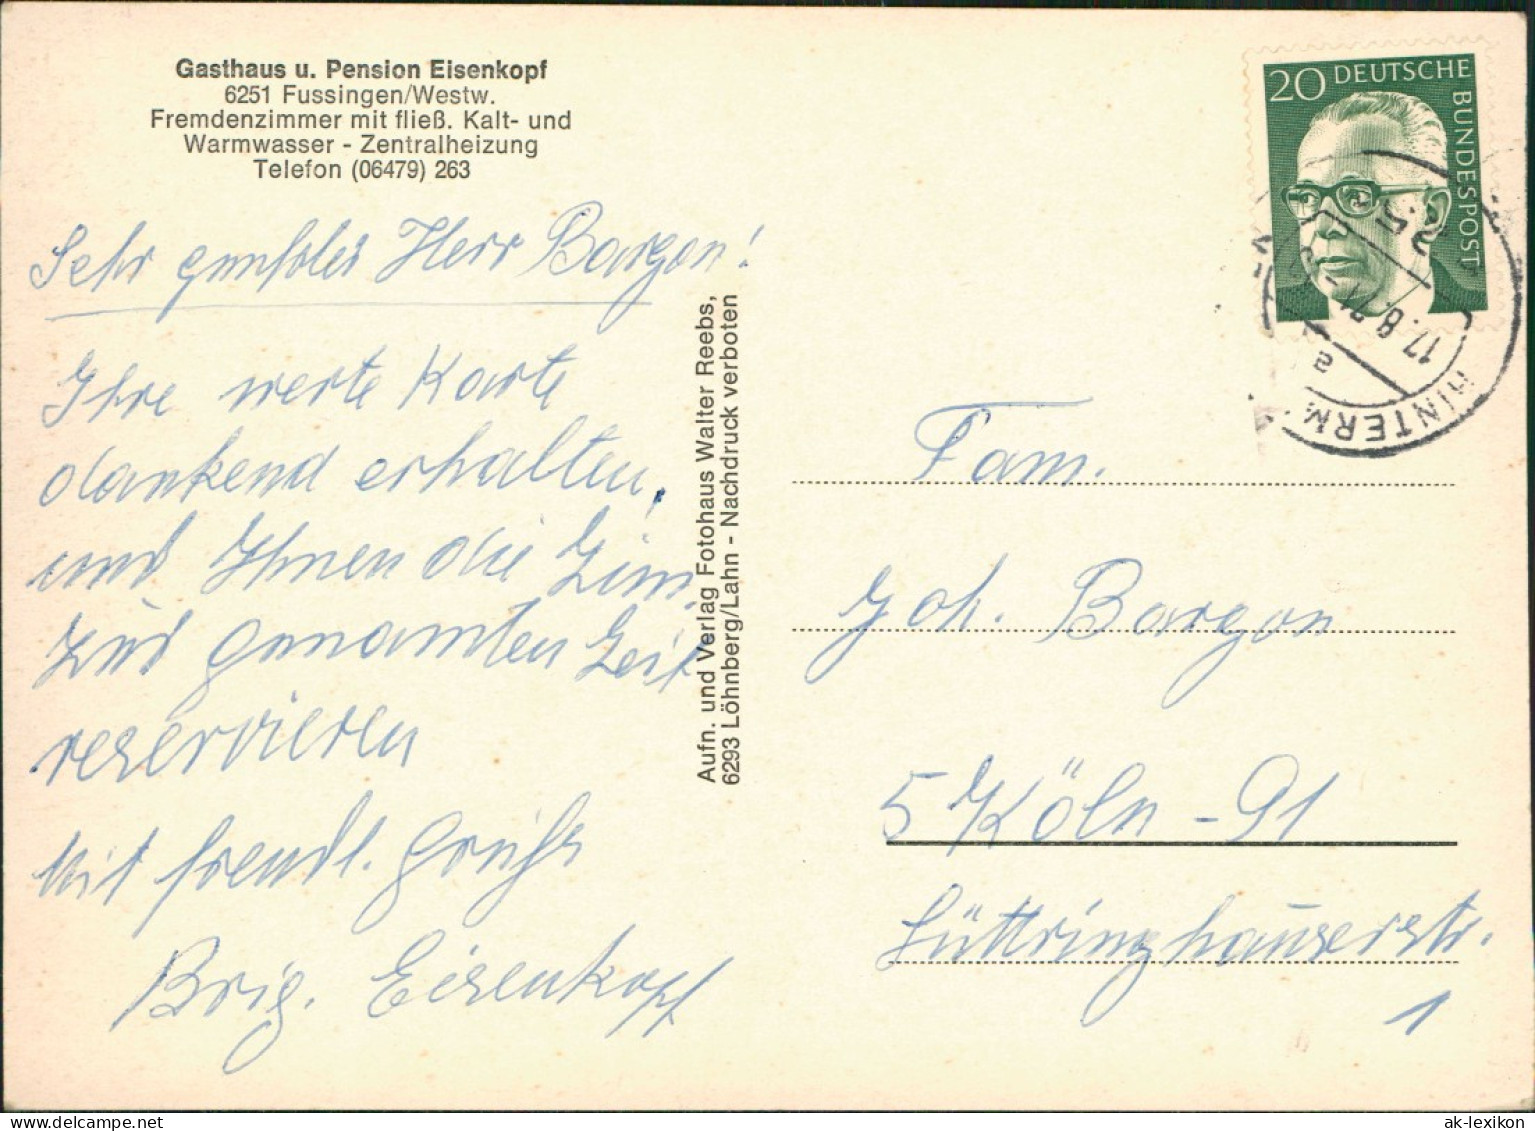 Gasthaus u. Pension Eisenkopf
6251 Fussingen/Westw.
Fremdenzimmer mit fließ. Kalt- und
Warmwasser - Zentralheizung
Telefon (06479) 263
Sehr geehrter Herr Bargon!
Ihre werte Karte
dankend erhalten,
und Ihnen die Zim.
zur genannten Zeit
reservieren
Mit freundl. Grüße
Brig. Eisenkopf
Aufn. und Verlag Fotohaus Walter Reebs,
6293 Löhnberg/Lahn - Nachdruck verboten
20 DEUTSCHE
BUNDESPOST
17.8.71
a
HINTERM
Fam.
Joh. Bargon
5 Köln - 91
Lüttringhauserstr.
1
ak-lexikon